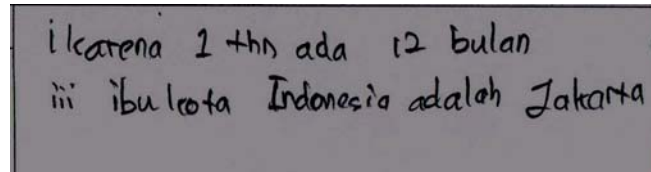 i karena 1 thn ada 12 bulan
iii ibu kota Indonesia adalah Jakarta